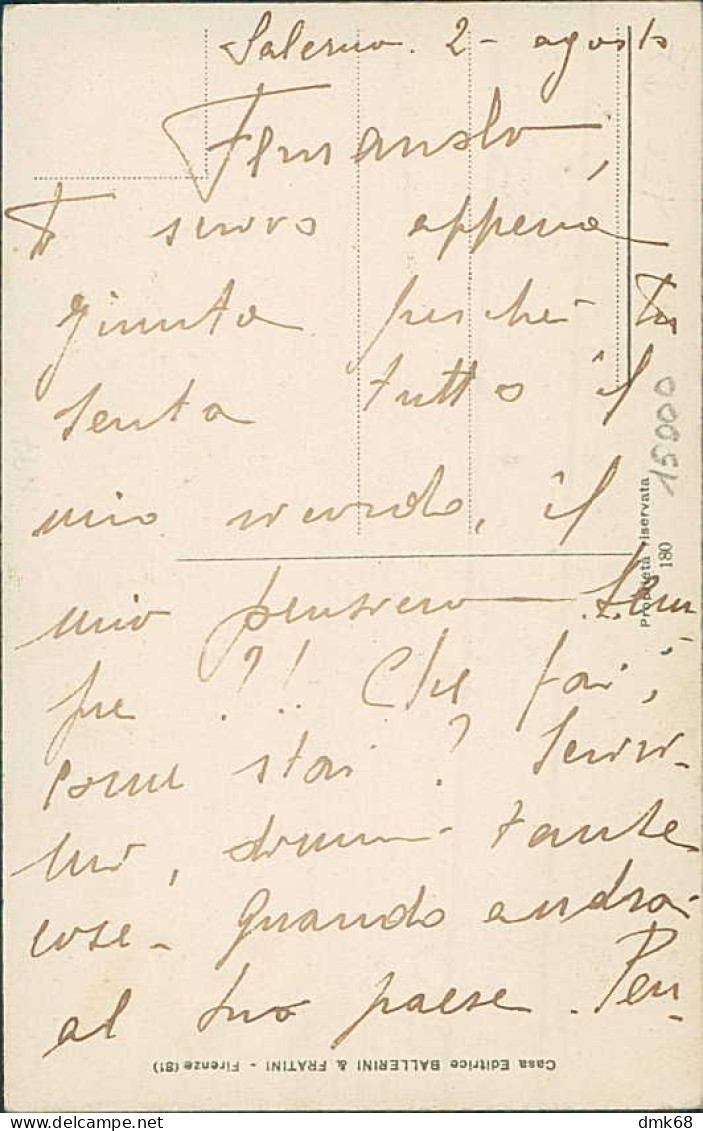 Salerno. 2 - agosto
Fernando,
Ti scrivo appena
giunta perché tu
senta tutto il
mio ricordo, il
mio pensiero - Sem-
pre ?!! Che fai,
come stai? Scrivi-
mi, dimmi tante
cose - Quando andrai
al tuo paese. Pen-
15000
Proprietà riservata
180
Casa Editrice BALLERINI & FRATINI - Firenze (81)
dmk68